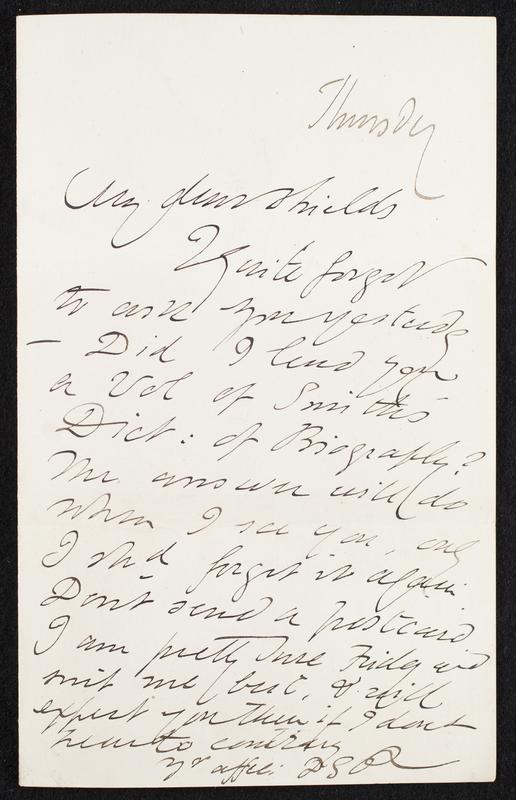 Thursday
My dear Shields
I quite forgot
to ask you yesterday
– Did I lend you
a Vol of Smith's
Dict: of Biography?
The answer will do
when I see you, only
I shd forget it again
Don't send a postcard
I am pretty sure Friday will
suit me best, & will
expect you then if I don't
hear to contrary
Yr affec: DGR